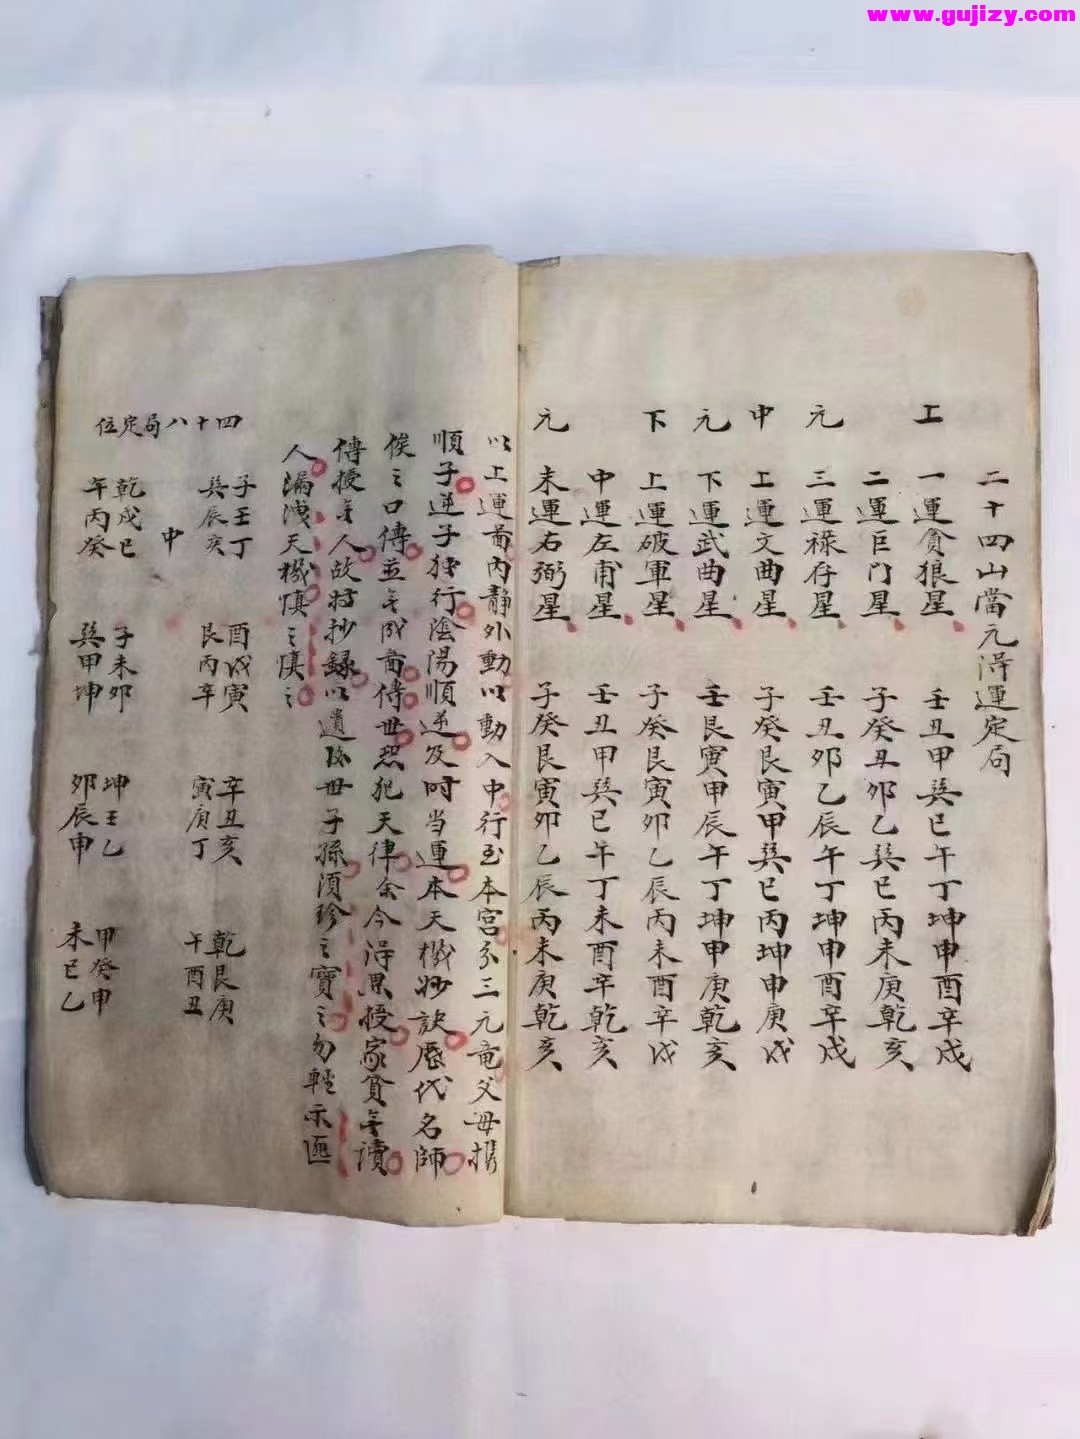 www.gujizy.com
二十四山當元得運定局
上 元 中 元 下 元
一運貪狼星 壬丑甲巽巳午丁坤申酉辛戌
二運巨门星 子癸丑卯乙巽巳丙未庚乾亥
三運祿存星 壬丑卯乙辰午丁坤申酉辛戌
上運文曲星 子癸艮寅甲巽巳丙坤申庚戌
下運武曲星 壬艮寅甲辰午丁坤申庚乾亥
上運破軍星 子癸艮寅卯乙辰丙未酉辛戌
中運左甫星 壬丑甲巽巳午丁未酉辛乾亥
末運右弼星 子癸艮寅卯乙辰丙未庚乾亥
以上運啚内靜外動以動入中行至本宮分三元竜父母携
順子逆子独行陰陽順逆及时当運本天機妙訣歷代名師
俟之口傳並無成啚传世恐犯天律余今得恩授家貧無讀
傳授無人故抄錄以遺後世子孫須珍之寶之勿輕示匪
人漏洩天機慎之慎之
四十八局定位
子壬丁
巽辰亥
酉戌寅
艮丙辛
辛丑亥
寅庚丁
乾艮庚
午酉丑
中
乾戌巳
午丙癸
子未卯
巽甲坤
坤壬乙
卯辰申
甲癸申
未巳乙